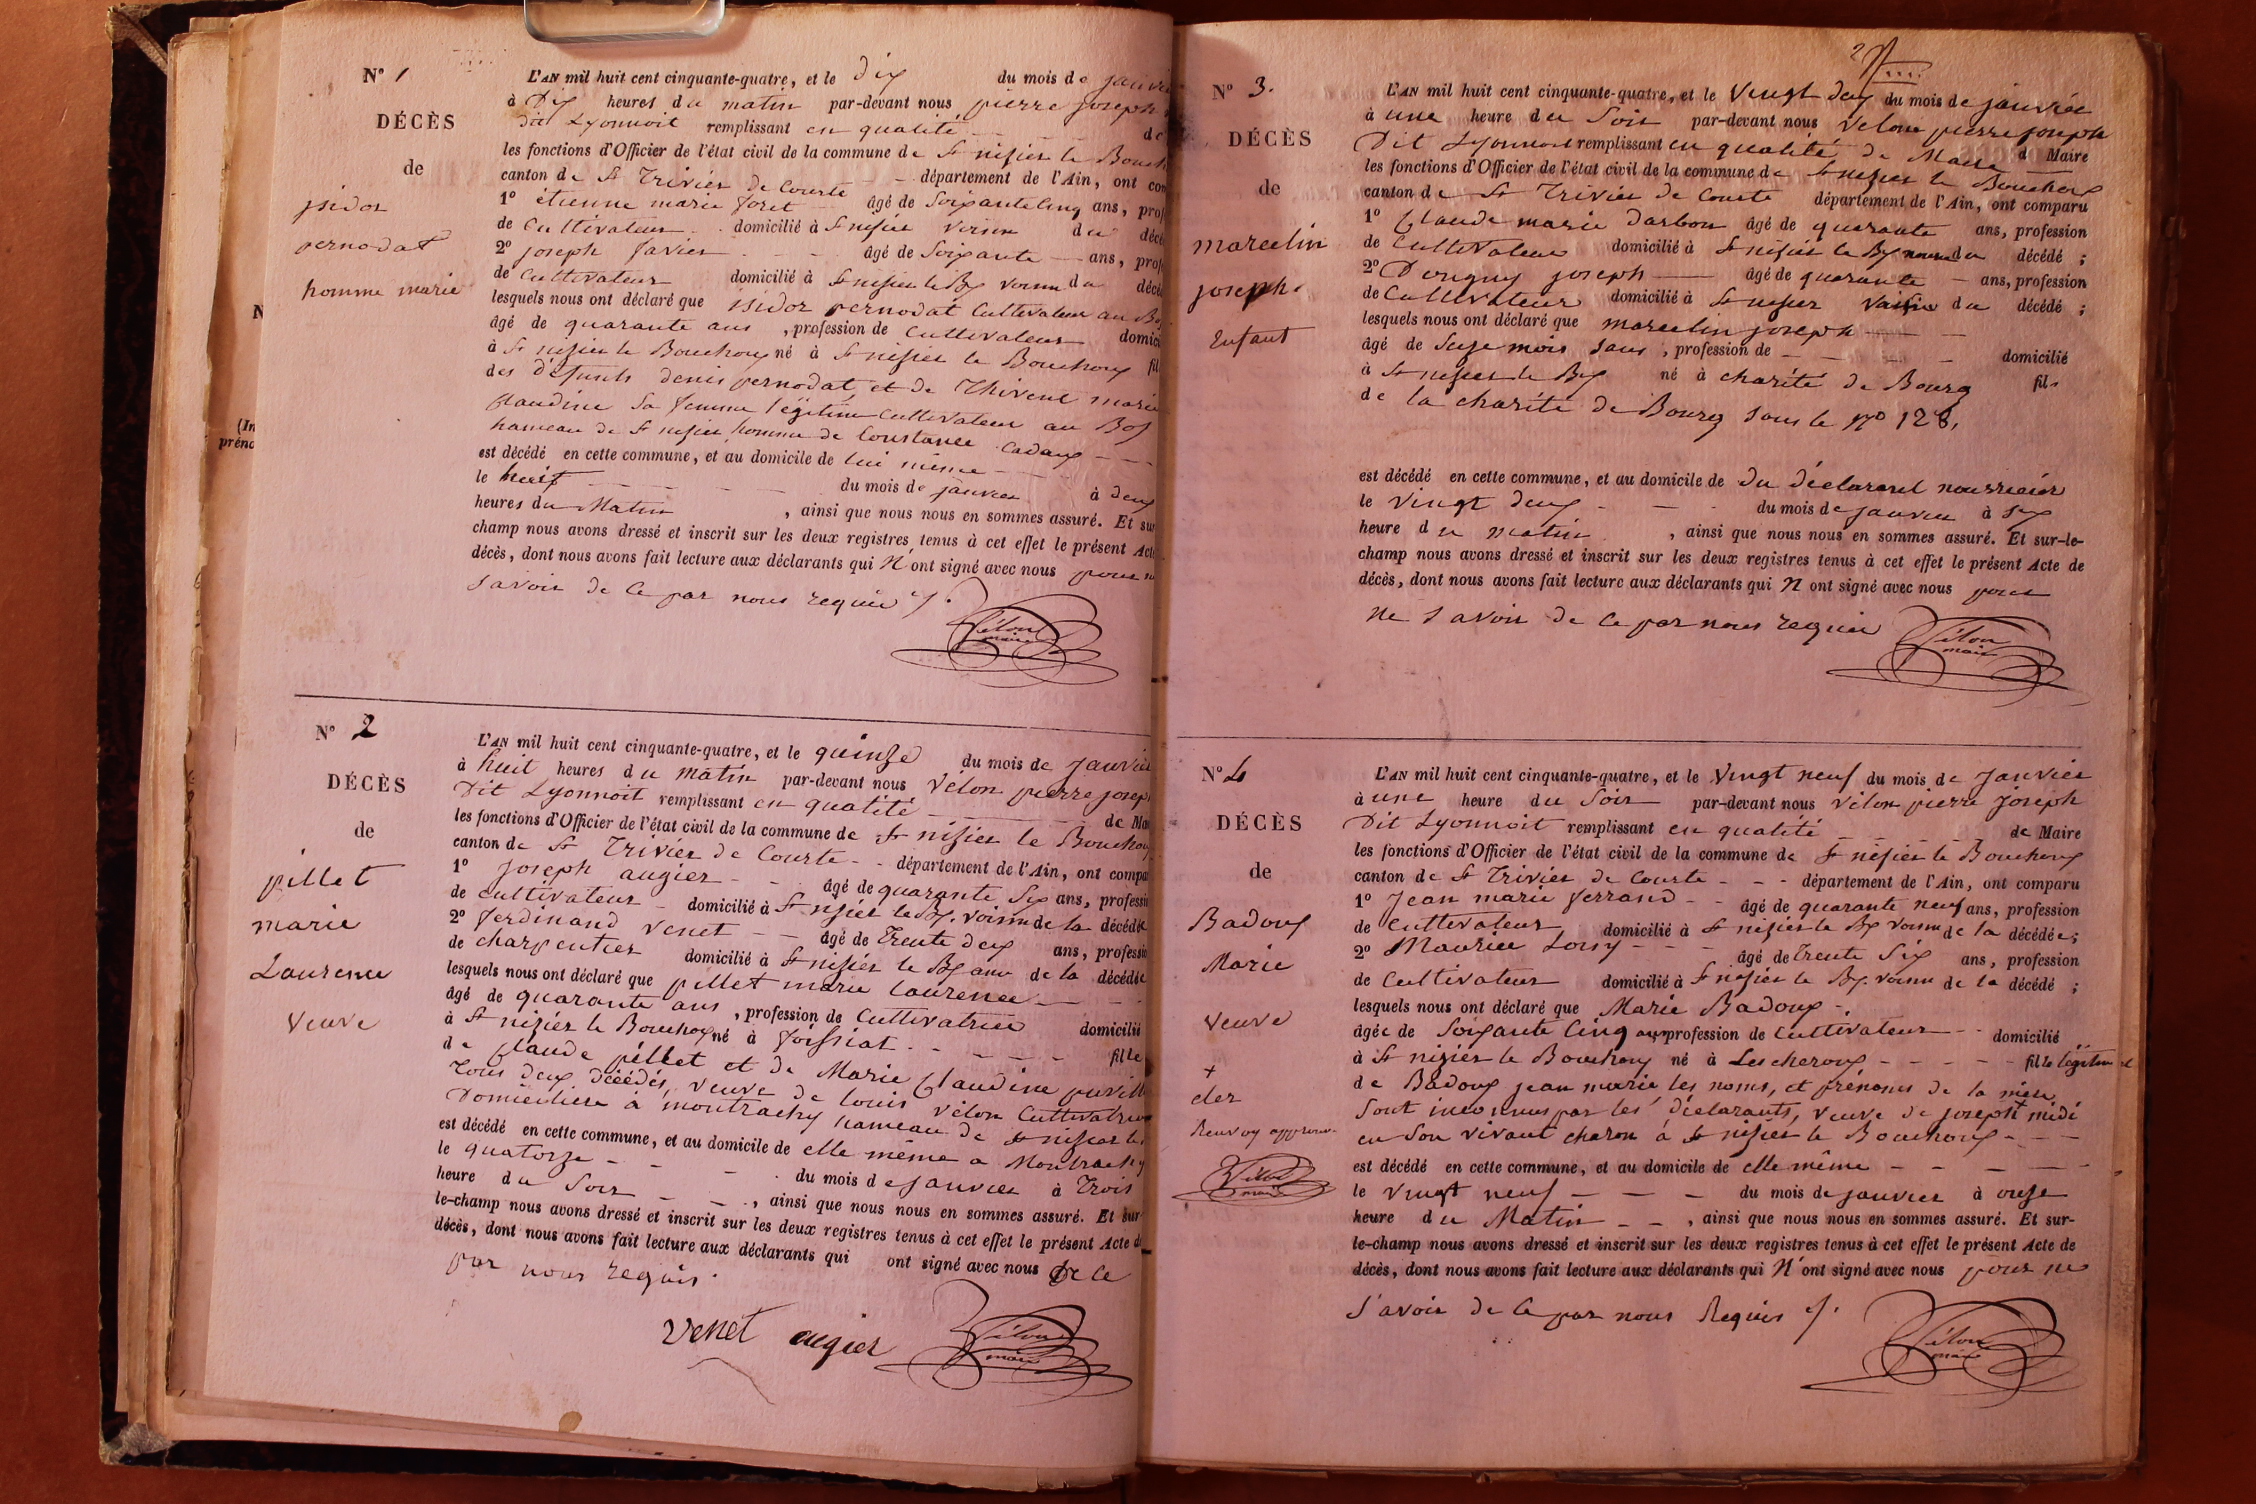 N° 1
DÉCÈS
de
isidor
pernodat
homme marié
L'AN mil huit cent cinquante-quatre, et le dix du mois de janvie
à Dix heures du matin par-devant nous pierre joseph
dit Lyonnoit remplissant en qualité de
les fonctions d'Officier de l'état civil de la commune de St nisier le Bouch
canton de St Trivier de Courte - - département de l'Ain, ont com
1° étienne marie foret âgé de Soixante Cinq ans, prof
de Cultivateur domicilié à St nisier voisin du décé
2° joseph favier - - - âgé de Soixante - ans, prof
de Cultivateur domicilié à St nisier le Bx voisin du décé
lesquels nous ont déclaré que isidor pernodat Cultivateur au Bo
âgé de quarante ans , profession de Cultivateur domici
à St nisier le Bouchoux né à St nisier le Bouchoux fil
des défunts denis pernodat et de Thivent marie
Claudine Sa femme légitime Cultivateur au Bos
hameau de St nisier homme de Constance Cadoux - - -
est décédé en cette commune, et au domicile de lui même -
le huit - - - - du mois de janvier à deux
heures du Matin , ainsi que nous nous en sommes assuré. Et sur
champ nous avons dressé et inscrit sur les deux registres tenus à cet effet le présent Acte
décès, dont nous avons fait lecture aux déclarants qui N'ont signé avec nous pour n
savoir de Ce par nous requis ./.
Vélon
maire
N° 2
DÉCÈS
de
pillet
marie
Laurence
Veuve
L'AN mil huit cent cinquante-quatre, et le quinze du mois de Janvie
à huit heures du matin par-devant nous Vélon pierre josep
Dit Lyonnoit remplissant en qualité - - - de Mai
les fonctions d'Officier de l'état civil de la commune de St nisier le Bouchou
canton de St Trivier de Courte - - département de l'Ain, ont compa
1° joseph augier - - âgé de quarante Six ans, professi
de cultivateur - domicilié à St nisier le Bx. voisin de la décédée
2° ferdinand venet - - âgé de Trente deux ans, professi
de charpentier domicilié à St nisier le Bx ami de la décédée
lesquels nous ont déclaré que pillet marie laurence - - -
âgé de quarante ans , profession de Cultivatrice domicilié
à St nizier le Bouchoux né à foissiat - - - - fille
de Claude pillet et de Marie Claudine
Tous deux décédés, veuve de louis vélon Cultivatrice
Domicilière à montrachy hameau de St nisier le
est décédé en cette commune, et au domicile de elle même a Montrachy
le quatorze - - - du mois de janvier à Trois
heure du Soir - - , ainsi que nous nous en sommes assuré. Et sur
le-champ nous avons dressé et inscrit sur les deux registres tenus à cet effet le présent Acte d
décès, dont nous avons fait lecture aux déclarants qui ont signé avec nous De Ce
par nous requis.
Venet augier
Vélon
maire
N° 3.
DÉCÈS
de
marcelin
joseph.
Enfant
L'AN mil huit cent cinquante-quatre, et le Vingt deux du mois de janvier
à une heure du Soir par-devant nous Vélon pierre joseph
Dit Lyonnoit remplissant en qualité de Maire d Maire
les fonctions d'Officier de l'état civil de la commune de St nisier le Bouchoux
canton de St Trivier de Courte département de l'Ain, ont comparu
1° Claude marie Darbon âgé de quarante ans, profession
de Cultivateur domicilié à St nisier le Bx du décédé ;
2° Donguy joseph - âgé de quarante - ans, profession
de Cultivateur domicilié à St nisier Voisin du décédé ;
lesquels nous ont déclaré que marcelin joseph - - -
âgé de Seize mois sans , profession de - - - domicilié
à St nisier le Bx né à charité de Bourg fils
de la charité de Bourg sous le No 128,
est décédé en cette commune, et au domicile de du déclarant nourricier
le vingt deux - - - du mois de janvier à Six
heure du matin , ainsi que nous nous en sommes assuré. Et sur-le-
champ nous avons dressé et inscrit sur les deux registres tenus à cet effet le présent Acte de
décès, dont nous avons fait lecture aux déclarants qui N ont signé avec nous pour
ne Savoir de Ce par nous requis
Vélon
maire
N° 4
DÉCÈS
de
Badoux
Marie
Veuve
+
clez
Renvoy approuv.
Vélon
maire
L'AN mil huit cent cinquante-quatre, et le Vingt neuf du mois de Janvier
à une heure du Soir par-devant nous Vélon pierre joseph
Dit Lyonnoit remplissant en qualité - - - de Maire
les fonctions d'Officier de l'état civil de la commune de St nisier le Bouchoux
canton de St Trivier de Courte - - - département de l'Ain, ont comparu
1° Jean marie ferrand - - âgé de quarante neuf ans, profession
de Cultivateur domicilié à St nisier le Bx voisin de la décédée ;
2° Maurice Loisy - - - âgé de Trente Six ans, profession
de Cultivateur domicilié à St nisier le Bx. voisin de la décédé ;
lesquels nous ont déclaré que Marie Badoux -
âgée de Soixante Cinq ans profession de Cultivateur - - domicilié
à St nizier le Bouchoux né à Lescheroux - - - - fille légitime
de Badoux jean marie les noms, et prénoms de la mère
Sont inconnus par les déclarants, veuve de joseph + midi
en Son vivant charon à St nisier le Bouchoux - - -
est décédé en cette commune, et au domicile de elle même - - - -
le Vingt neuf - - - du mois de janvier à onze
heure du Matin - - , ainsi que nous nous en sommes assuré. Et sur-
le-champ nous avons dressé et inscrit sur les deux registres tenus à cet effet le présent Acte de
décès, dont nous avons fait lecture aux déclarants qui N'ont signé avec nous pour ne
Savoir de Ce par nous Requis ./.
Vélon
maire